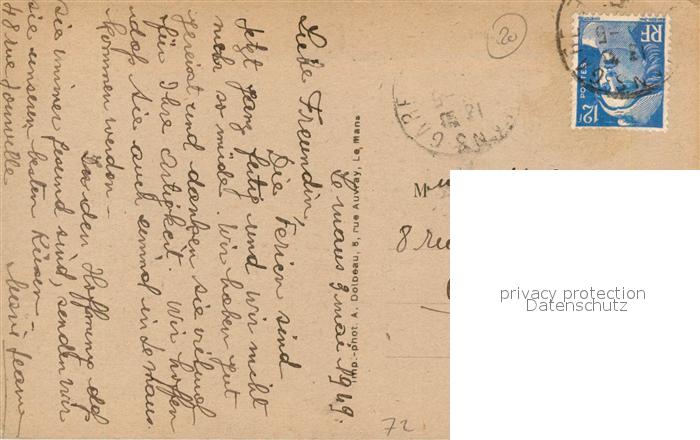 Le mans 9 mai 1949.
Liebe Freundin,
Die Ferien sind
jetzt ganz fertig und wir nicht
mehr so müde. Wir haben gut
gereist und danken sie vielmal
für Ihre Artigkeit. Wir hoffen
dass sie auch einmal in Le mans
kommen werden -
In der Hoffnung das
sie immer gesund sind, senden wir
sie unseren besten Küssen -
Marie Jeanne
48 rue Joinville
Imp.-phot. A. Dolbeau, 8, rue Auvray, Le Mans
20
RF
POSTES
12F
GARE
M
8 rue
72
privacy protection
Datenschutz